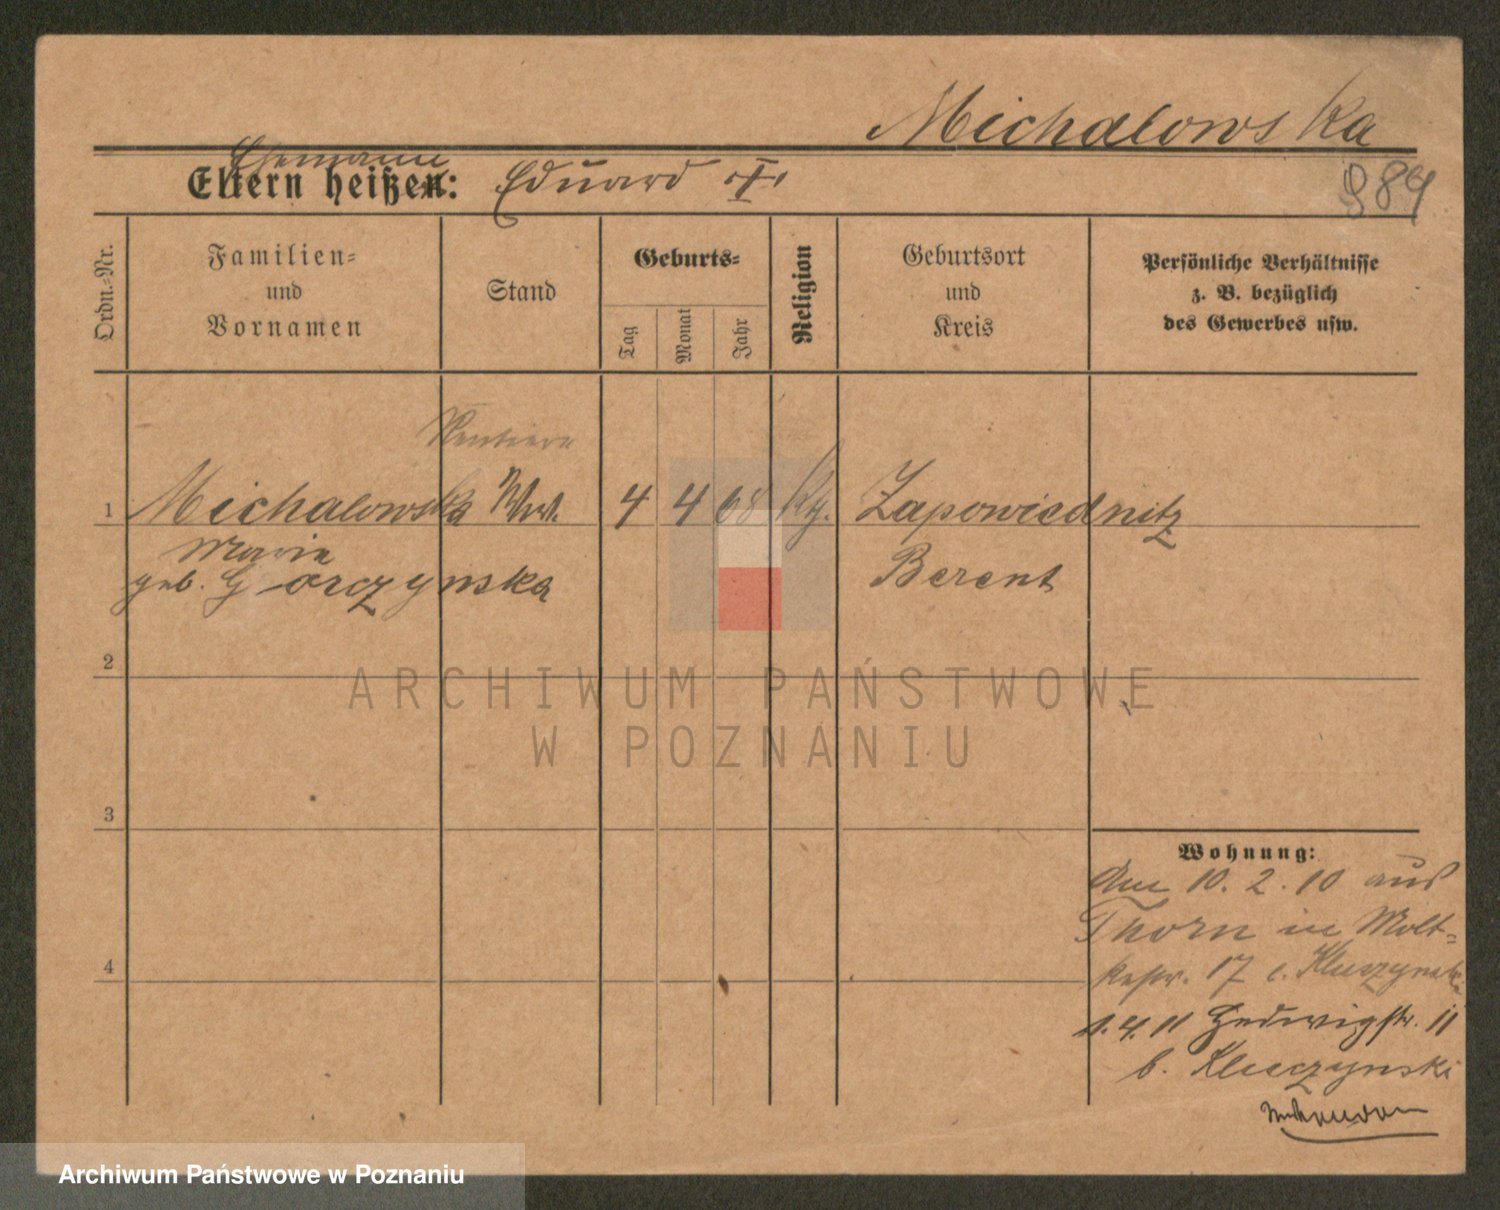 Michalowska
984
Ehemann
Eltern heißen: Eduard †
Ordn.-Nr.
Familien-
und
Vornamen
Stand
Geburts-
Tag
Monat
Jahr
Religion
Geburtsort
und
Kreis
Persönliche Verhältnisse
z. B. bezüglich
des Gewerbes usw.
Rentiere
1 Michalowska Ww. 4 4 68 Zapowiednitz
Marie
geb. Gorczynska
Berent
2
ARCHIWUM PAŃSTWOWE
W POZNANIU
3
4
Wohnung:
Am 10.2.10 aus
Thorn in Molt-
kestr. 17 Kluczynski
1.4.11 Hedwigstr. 11
b. Kluczynski
Archiwum Państwowe w Poznaniu